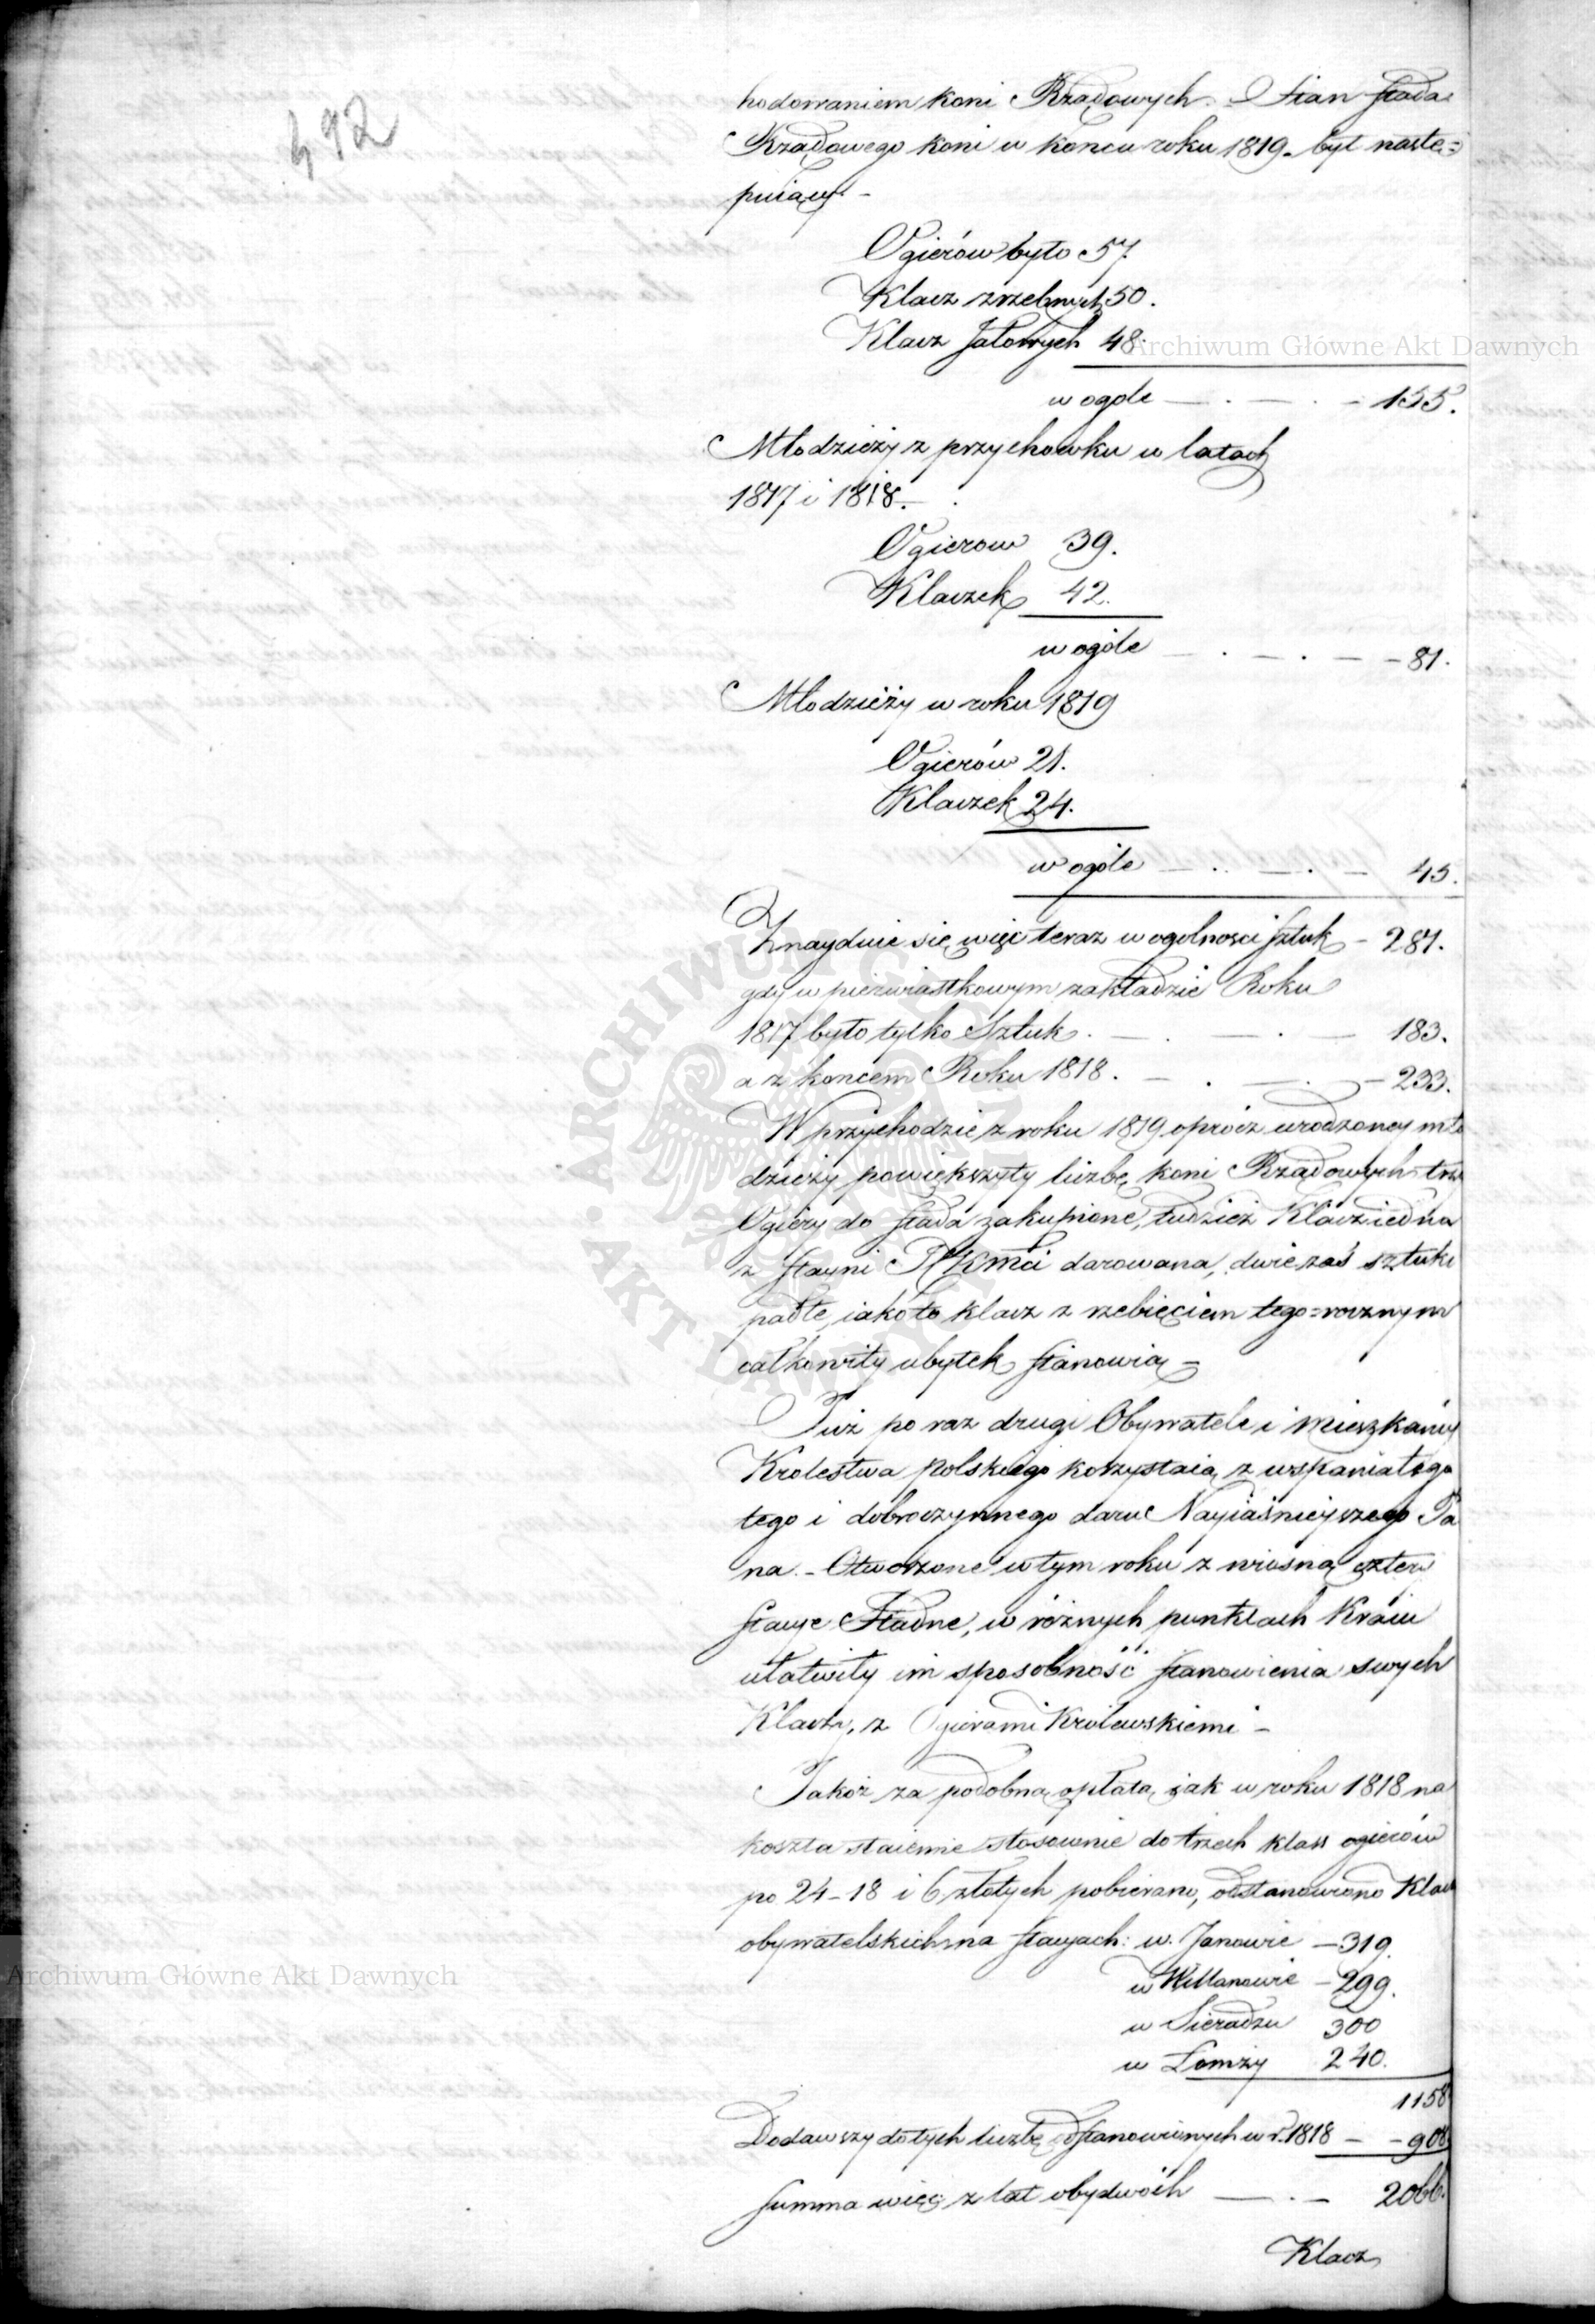 492
hodowaniem koni Rządowych. Stan Stada
Rządowego koni w końcu roku 1819. był nastę=
puiący –
Ogierów było 57.
Klacz zrzebnych 50.
Klacz Jałowych 48.
w ogóle — . — . – 155.
Młodzieży z przychowku w latach
1817 i 1818. — .
Ogierow 39.
Klaczek 42.
w ogóle — . — . — – 81.
Młodzieży w roku 1819
Ogierów 21.
Klaczek 24.
w ogóle — . — . — 45.
Znayduie się więc teraz w ogolnosci sztuk – 281.
gdy w pierwiastkowym zakładzie Roku
1817 było tylko Sztuk . — . — . — 183.
a z koncem Roku 1818 . — . — . – 233.
W przychodzie z roku 1819 oprócz urodzoney mło
dzieży powiększyły liczbę koni Rządowych trzy
Ogiery do Stada zakupione, tudzież Klacz iedna
z stayni darowana, dwie zaś sztuki
padłe, iako to klacz z rzebięciem tego=rocznym
całkowity ubytek stanowią –
Już po raz drugi Obywatele i mieszkańcy
Krolestwa polskiego korzystaią z wspaniałego
tego i dobroczynnego daru Nayiaśnieyszego Pa
na. – Otworzone w tym roku z wiosną cztery
stacye Stadne, w różnych punktach Kraiu
ułatwiły im sposobność stanowienia swych
Klaczy, z Ogierami Królewskiemi –
Jakoż za podobną opłatą, jak w roku 1818 na
koszta staienne stosownie do trzech klass ogierów
po 24 – 18 i 6 złotych pobierano, odstanowiono Klacz
obywatelskich na stacyach: w Janowie – 319.
w Willanowie – 299.
w Sieradzu 300
w Łomży 240.
1158
Dodawszy do tych liczbę odstanowionych w r. 1818 – – 908
Summa więc z lat obydwóch — . – 2066.
Klacz
Archiwum Główne Akt Dawnych
Archiwum Główne Akt Dawnych
ARCHIWUM GŁÓWNE AKT DAWNYCH